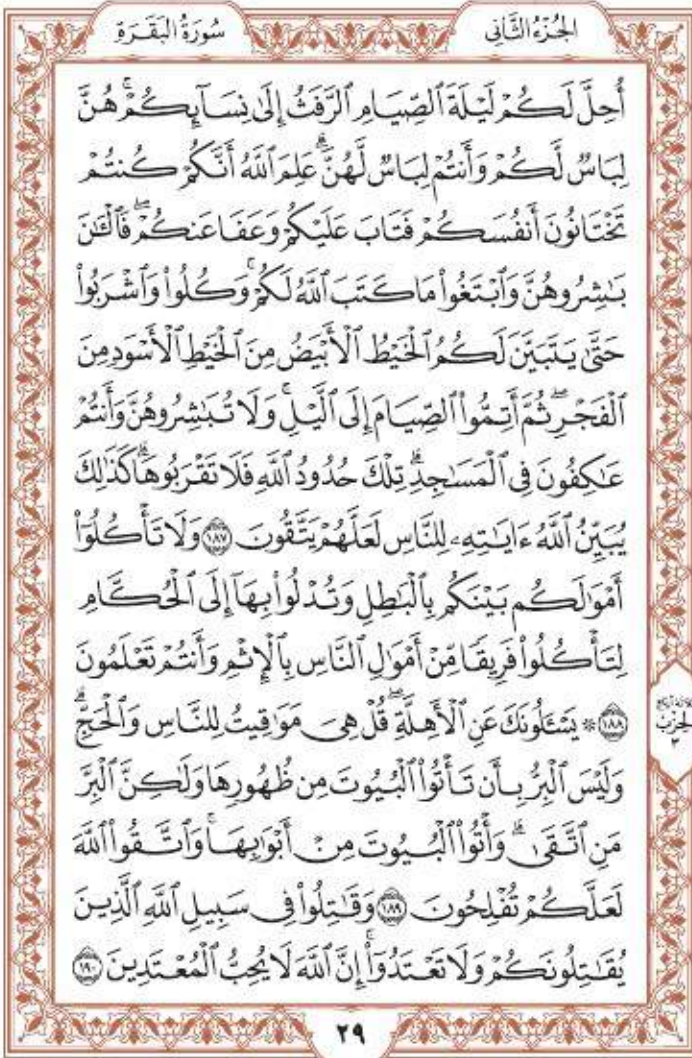 سُورَةُ البَقَرَةِ
الجُزْءُ الثَّانِى
أُحِلَّ لَكُمْ لَيْلَةَ ٱلصِّيَامِ ٱلرَّفَثُ إِلَىٰ نِسَآئِكُمْۚ هُنَّ
لِبَاسٌ لَّكُمْ وَأَنتُمْ لِبَاسٌ لَّهُنَّۗ عَلِمَ ٱللَّهُ أَنَّكُمْ كُنتُمْ
تَخْتَانُونَ أَنفُسَكُمْ فَتَابَ عَلَيْكُمْ وَعَفَا عَنكُمْۖ فَٱلْـَٰٔنَ
بَـٰشِرُوهُنَّ وَٱبْتَغُوا۟ مَا كَتَبَ ٱللَّهُ لَكُمْۚ وَكُلُوا۟ وَٱشْرَبُوا۟
حَتَّىٰ يَتَبَيَّنَ لَكُمُ ٱلْخَيْطُ ٱلْأَبْيَضُ مِنَ ٱلْخَيْطِ ٱلْأَسْوَدِ مِنَ
ٱلْفَجْرِۖ ثُمَّ أَتِمُّوا۟ ٱلصِّيَامَ إِلَى ٱلَّيْلِۚ وَلَا تُبَـٰشِرُوهُنَّ وَأَنتُمْ
عَـٰكِفُونَ فِى ٱلْمَسَـٰجِدِۗ تِلْكَ حُدُودُ ٱللَّهِ فَلَا تَقْرَبُوهَاۗ كَذَٰلِكَ
يُبَيِّنُ ٱللَّهُ ءَايَـٰتِهِۦ لِلنَّاسِ لَعَلَّهُمْ يَتَّقُونَ ١٨٧ وَلَا تَأْكُلُوٓا۟
أَمْوَٰلَكُم بَيْنَكُم بِٱلْبَـٰطِلِ وَتُدْلُوا۟ بِهَآ إِلَى ٱلْحُكَّامِ
لِتَأْكُلُوا۟ فَرِيقًا مِّنْ أَمْوَٰلِ ٱلنَّاسِ بِٱلْإِثْمِ وَأَنتُمْ تَعْلَمُونَ
١٨٨ ۞ يَسْـَٔلُونَكَ عَنِ ٱلْأَهِلَّةِۖ قُلْ هِىَ مَوَٰقِيتُ لِلنَّاسِ وَٱلْحَجِّۗ
وَلَيْسَ ٱلْبِرُّ بِأَن تَأْتُوا۟ ٱلْبُيُوتَ مِن ظُهُورِهَا وَلَـٰكِنَّ ٱلْبِرَّ
مَنِ ٱتَّقَىٰۗ وَأْتُوا۟ ٱلْبُيُوتَ مِنْ أَبْوَٰبِهَاۚ وَٱتَّقُوا۟ ٱللَّهَ
لَعَلَّكُمْ تُفْلِحُونَ ١٨٩ وَقَـٰتِلُوا۟ فِى سَبِيلِ ٱللَّهِ ٱلَّذِينَ
يُقَـٰتِلُونَكُمْ وَلَا تَعْتَدُوٓا۟ۚ إِنَّ ٱللَّهَ لَا يُحِبُّ ٱلْمُعْتَدِينَ ١٩٠
الحِزْبُ
٣
٢٩